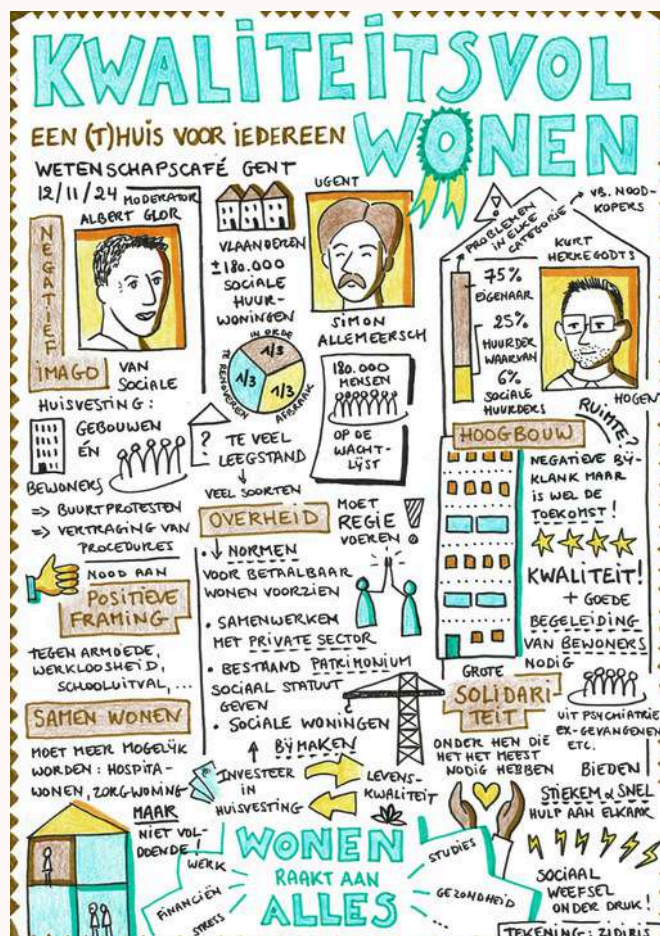 KWALITEITSVOL
WONEN
EEN (T)HUIS VOOR IEDEREEN
WETENSCHAPSCAFÉ GENT
12/11/24
MODERATOR
ALBERT GLOR
NEGATIEF
IMAGO
VAN
SOCIALE
HUISVESTING:
GEBOUWEN
ÉN
BEWONERS
=> BUURTPROTESTEN
=> VERTRAGING VAN
PROCEDURES
NOOD AAN
POSITIEVE
FRAMING
TEGEN ARMOEDE,
WERKLOOSHEID,
SCHOOLUITVAL, ...
SAMEN WONEN
MOET MEER MOGELIJK
WORDEN: HOSPITA-
WONEN, ZORGWONING
MAAR
NIET VOL-
DOENDE!
VLAANDEREN
±180.000
SOCIALE
HUUR-
WONINGEN
IN ORDE
1/3
TE RENOVEREN
1/3
AFBRAAK
1/3
?
TE VEEL
LEEGSTAND
VEEL SOORTEN
UGENT
SIMON
ALLEMEERSCH
180.000
MENSEN
OP DE
WACHT-
LIJST
OVERHEID
MOET
REGIE
VOEREN
!
NORMEN
VOOR BETAALBAAR
WONEN VOORZIEN
• SAMENWERKEN
MET PRIVATE SECTOR
• BESTAAND PATRIMONIUM
SOCIAAL STATUUT
GEVEN
• SOCIALE WONINGEN
BIJMAKEN
INVESTEER
IN
HUISVESTING
LEVENS-
KWALITEIT
PROBLEMEN
IN ELKE
CATEGORIE
VB. NOOD-
KOPERS
75%
EIGENAAR
25%
HUURDER
WAARVAN
6%
SOCIALE
HUURDERS
KURT
HERREGODTS
HOGENT
RUIMTE?
HOOGBOUW
NEGATIEVE BIJ-
KLANK MAAR
IS WEL DE
TOEKOMST!
KWALITEIT!
+ GOEDE
BEGELEIDING
VAN BEWONERS
NODIG
UIT PSYCHIATRIE
EX-GEVANGENEN
ETC.
GROTE
SOLIDARI-
TEIT
ONDER HEN DIE
HET HET MEEST
NODIG HEBBEN
BIEDEN
STIEKEM & SNEL
HULP AAN ELKAAR
SOCIAAL
WEEFSEL
ONDER DRUK!
WONEN
RAAKT AAN
ALLES
WERK
FINANCIËN
STRESS
STUDIES
GEZONDHEID
...
TEKENING: ZIDIRIS